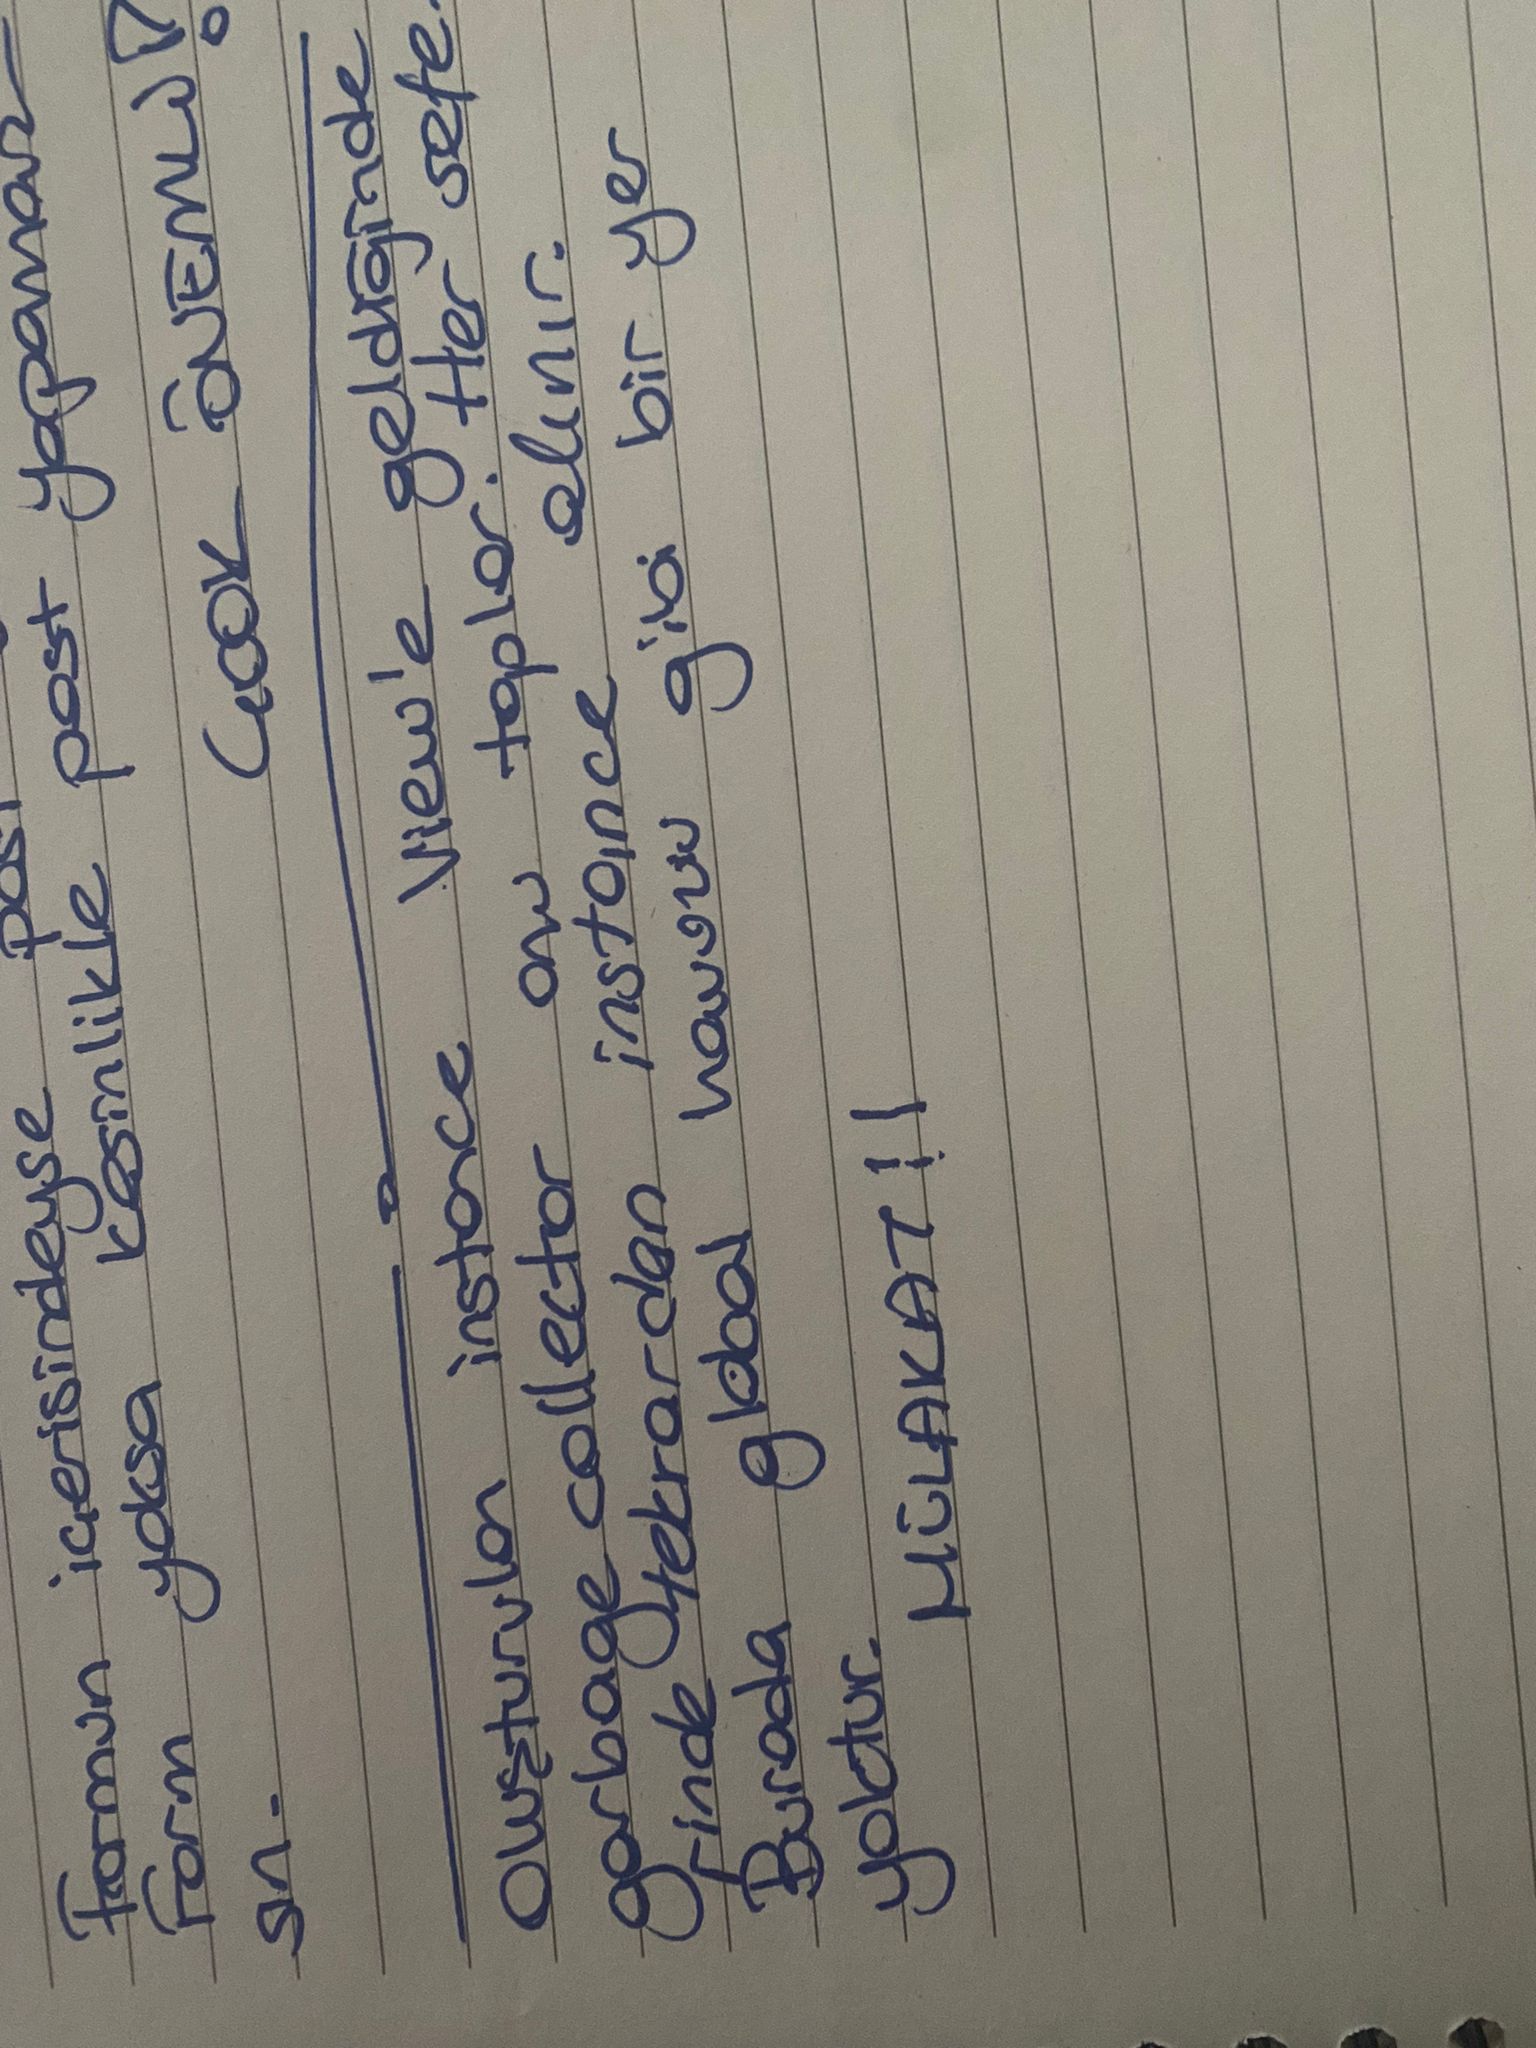 Formun içerisindeyse post
Form yoksa kesinlikle post yapamaz
sın.
ÇOOK ÖNEMLİ!
Oluşturulan instance View'e geldiğinde
garbage collector onu toplar. Her sefe-
rinde tekrardan instance alınır.
Burada global havuzu gibi bir yer
yoktur.
MÜLAKAT!!